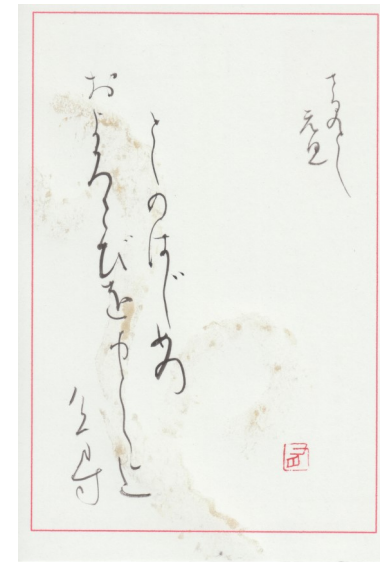 さるのとし
元旦
としのはじめの
およろこびを申し上